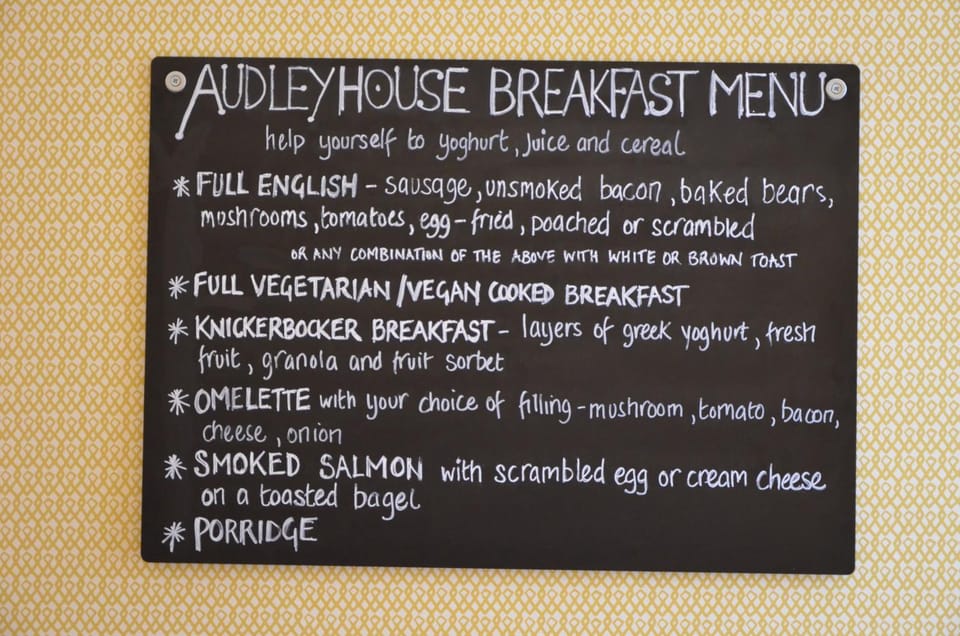 AUDLEY HOUSE BREAKFAST MENU
help yourself to yoghurt, juice and cereal
* FULL ENGLISH - sausage, unsmoked bacon, baked beans,
mushrooms, tomatoes, egg - fried, poached or scrambled
OR ANY COMBINATION OF THE ABOVE WITH WHITE OR BROWN TOAST
* FULL VEGETARIAN / VEGAN COOKED BREAKFAST
* KNICKERBOCKER BREAKFAST - layers of greek yoghurt, fresh
fruit, granola and fruit sorbet
* OMELETTE with your choice of filling - mushroom, tomato, bacon,
cheese, onion
* SMOKED SALMON with scrambled egg or cream cheese
on a toasted bagel
* PORRIDGE